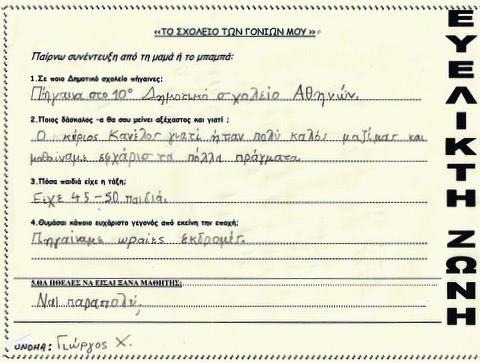 «ΤΟ ΣΧΟΛΕΙΟ ΤΩΝ ΓΟΝΙΩΝ ΜΟΥ»
Παίρνω συνέντευξη από τη μαμά ή το μπαμπά:
1.Σε ποιο Δημοτικό σχολείο πήγαινες;
Πήγαινα στο 10° Δημοτικό σχολείο Αθηνών.
2.Ποιος δάσκαλος -α θα σου μείνει αξέχαστος και γιατί ;
Ο κύριος Κανέλος γιατί ήταν πολύ καλός μαζίμας και
μαθαίναμε ευχάριστα πόλλα πράγματα.
3.Πόσα παιδιά είχε η τάξη;
Είχε 45-50 παιδιά.
4.Θυμάσαι κάποιο ευχάριστο γεγονός από εκείνη την εποχή;
Πηγαίναμε ωραίες εκδρομές.
5.ΘΑ ΗΘΕΛΕΣ ΝΑ ΕΙΣΑΙ ΞΑΝΑ ΜΑΘΗΤΗΣ;
Ναι παραπολύ.
ΟΝΟΜΑ: Γιώργος Χ.
ΕΥΕΛΙΚΤΗ ΖΩΝΗ